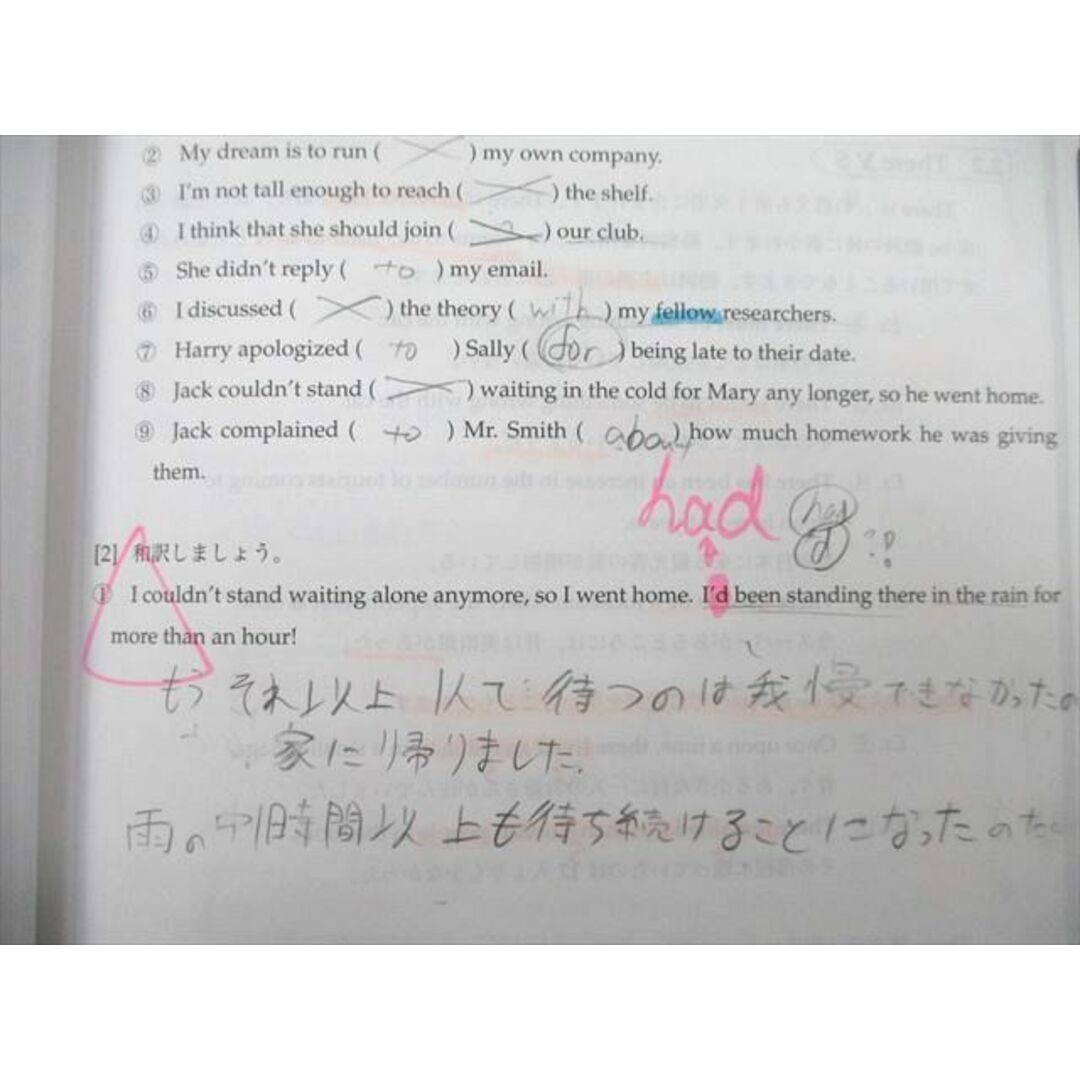 ② My dream is to run ( ) my own company.
③ I'm not tall enough to reach ( ) the shelf.
④ I think that she should join ( ) our club.
⑤ She didn't reply ( to ) my email.
⑥ I discussed ( ) the theory ( with ) my fellow researchers.
⑦ Harry apologized ( to ) Sally ( for ) being late to their date.
⑧ Jack couldn't stand ( ) waiting in the cold for Mary any longer, so he went home.
⑨ Jack complained ( to ) Mr. Smith ( about ) how much homework he was giving
them.
had
[2] 和訳しましょう。
① I couldn't stand waiting alone anymore, so I went home. I'd been standing there in the rain for
more than an hour!
もうそれ以上 1人で待つのは我慢できなかったの
家に帰りました.
雨の中1時間以上も待ち続けることになったのだ